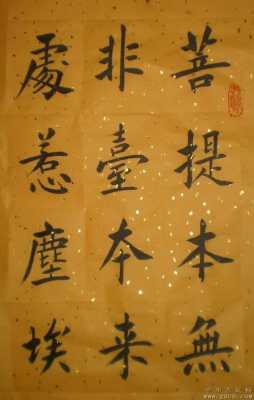 菩提本無
非臺本来
處惹塵埃